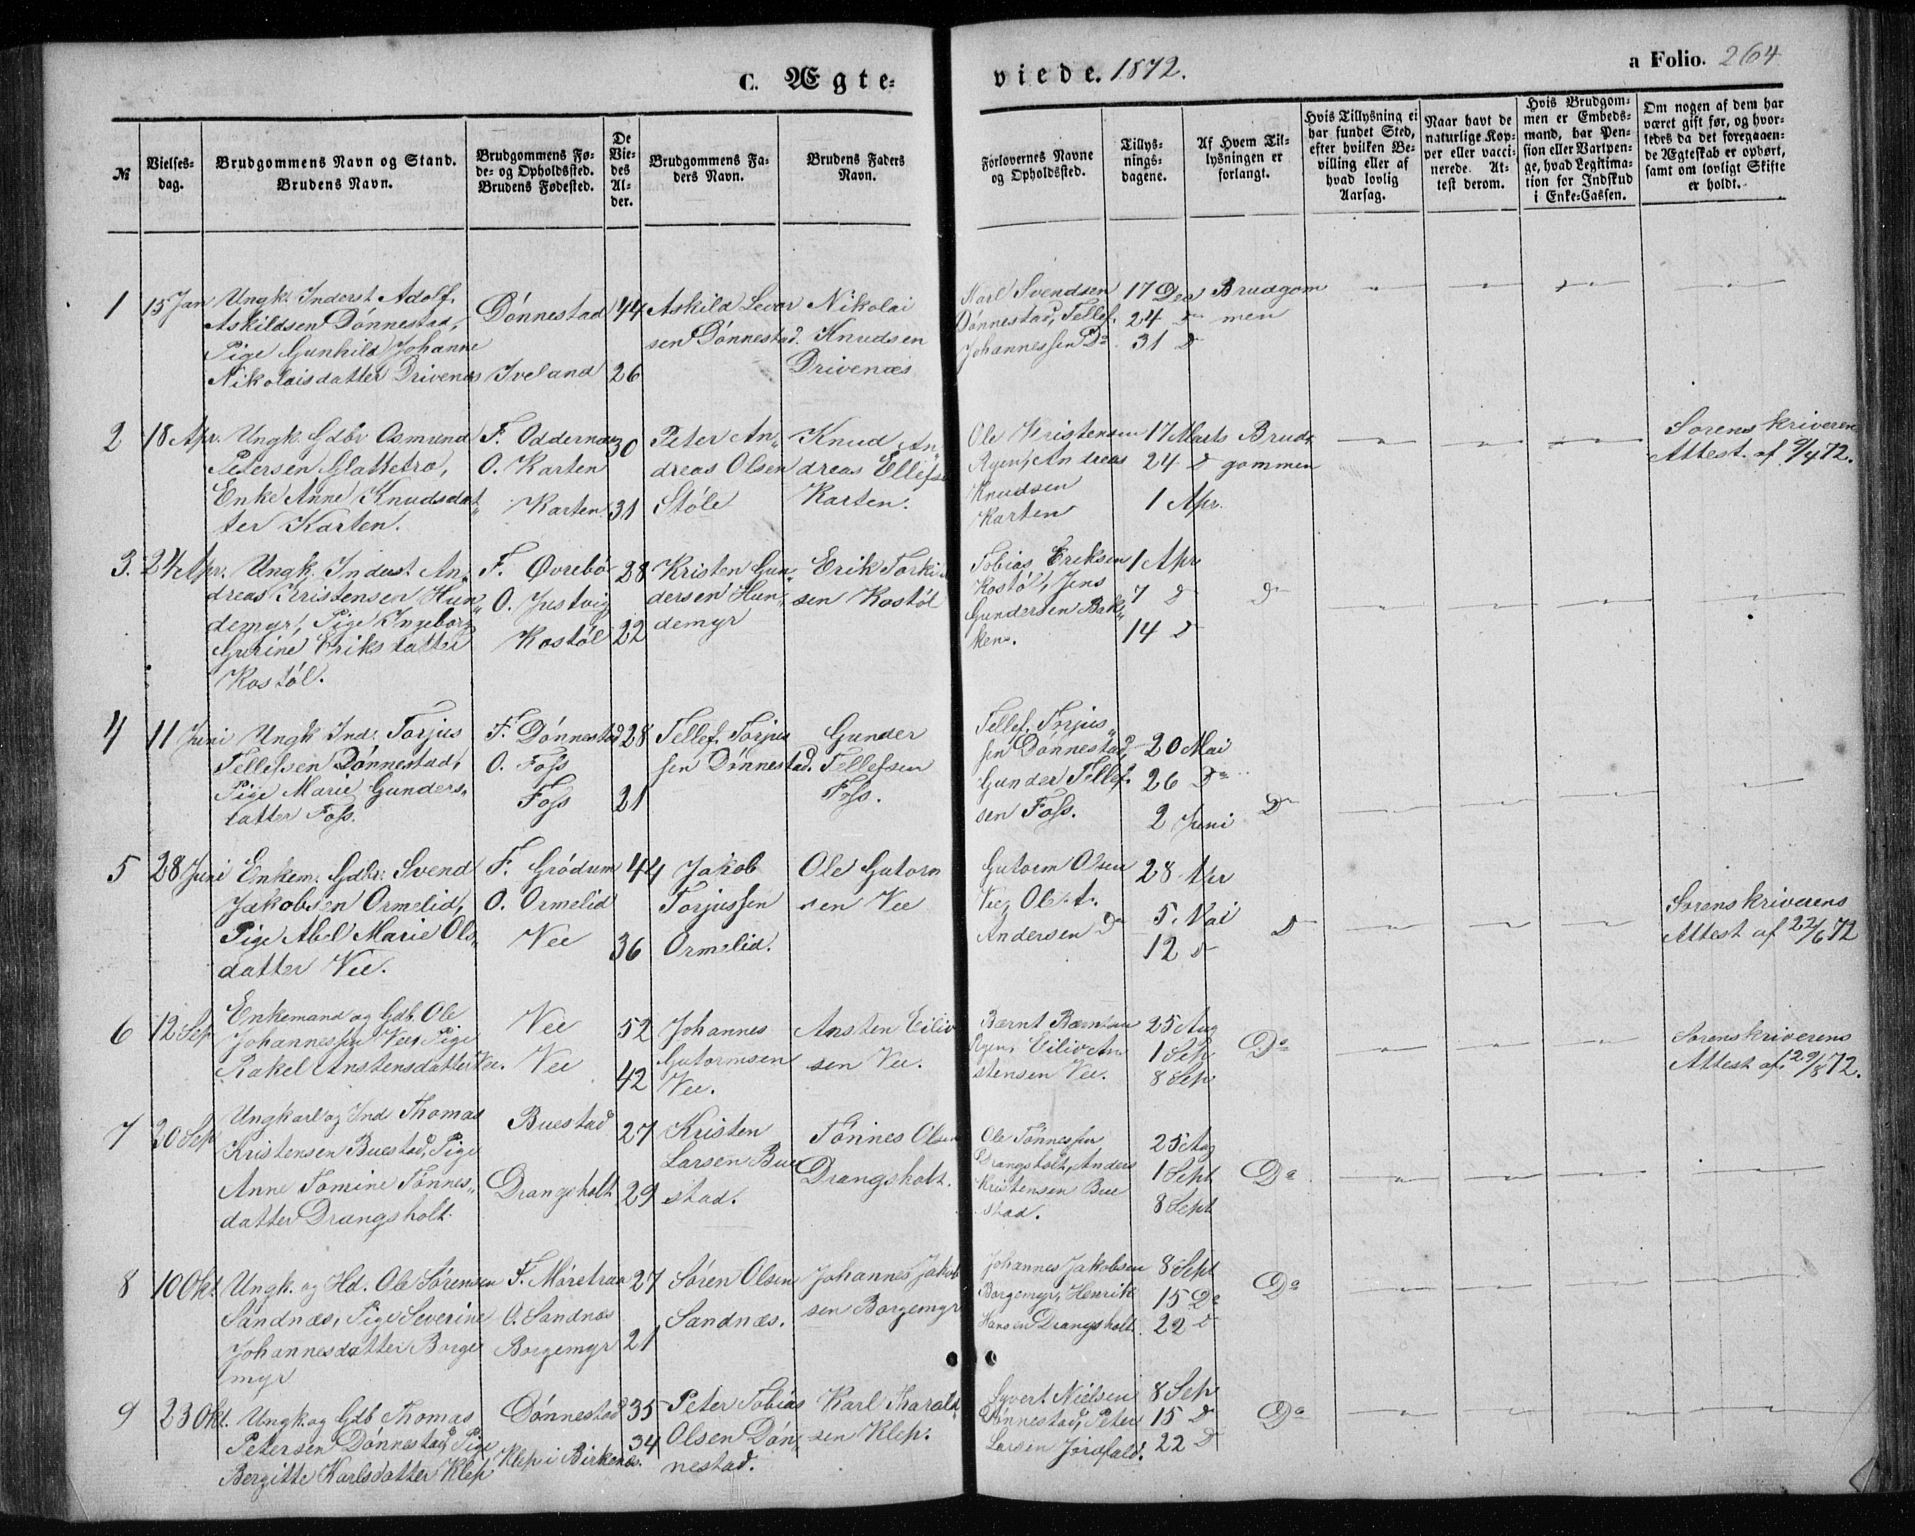 C. Ægte-
viede. 1872.
a Folio. 264
№
Vielses-
dag.
Brudgommens Navn og Stand.
Brudens Navn.
Brudgommens Fø-
de- og Opholdssted.
Brudens Fødested.
De
Vie-
des
Al-
der.
Brudgommens Fa-
ders Navn.
Brudens Faders
Navn.
Forlovernes Navne
og Opholdssted.
Tillys-
nings-
dagene.
Af Hvem Til-
lysningen er
forlangt.
Hvis Tillysning ei
har fundet Sted,
efter hvilken Be-
villing eller af
hvad lovlig
Aarsag.
Naar havt de
naturlige Kop-
per eller vacci-
nerede. At-
test derom.
Hvis Brudgom-
men er Embeds-
mand, har Pen-
sion eller Vartpen-
ge, hvad Legitima-
tion for Indskud
i Enke-Cassen.
Om nogen af dem har
været gift før, og hvor-
ledes da det foregaaen-
de Ægteskab er ophørt,
samt om lovligt Skifte
er holdt.
1
15 Jan
Ungk. Inderst Adolf
Askildsen Dønnestad,
Pige Gunhild Johanne
Nikolaisdatter Drivenæs
Dønnestad
Iveland
44
26
Askild Levor
sen Dønnestad.
Nikolai
Knudsen
Drivenæs
Karl Svendsen
Dønnestad, Tellef
Johannessen Do
17 Dec
24 D
31 D
Brudgom
men
2
18 Apr.
Ungk. Gdbr Osmund
Petersen Glattetro,
Enke Anne Knudsdat
ter Karten.
F. Oddernæs
O. Karten
Karten
30
31
Peter An„
dreas Olsen
Støle
Knud An„
dreas Ellefsen
Karten.
Ole Kristensen
Ryen, Andreas
Knudsen
Karten
17 Marts
24 D
1 Apr.
Brud„
gommen
Sorenskriveren
Attest. af 9/4 72.
3.
24 Apr.
Ungk. Inderst An„
dreas Kristensen Hun„
demyr, Pige Ingeborg
Gurine Eriksdatter
Kostøl.
F. Øvrebø
O. Justvig
Kostøl
28
22
Kristen Gun„
dersen Hun„
demyr
Erik Torki
sen Kostøl
Tobias Eriksen
Kostøl, Jens
Gundersen Bak„
ken.
1 Apr
7 D
14 D
Do
4
11 Juni
Ungk Ind. Torjus
Tellefsen Dønnestad,
Pige Marie Gunders„
datter Foss.
F. Dønnestad
O. Foss
Foss
28
21
Tellef Torjus
sen Dønnestad.
Gunder
Tellefsen
Foss.
Tellef Torjus„
sen Dønnestad,
Gunder Tellef„
sen Foss.
20 Mai
26 Do
2 Juni
Do
5
28 Juni
Enkem. Gdbr. Svend
Jakobsen Ormelid,
Pige Abel Marie Ols„
datter Vee.
F. Grødum
O. Ormelid
Vee
44
36
Jakob
Torjussen
Ormelid.
Ole Gutorm
sen Vee
Gutorm Olsen
Vee, Ole A.
Andersen Do
28 Apr
5. Mai
12 D
D
Sorenskriverens
Attest af 22/6 72
6
12 Sep
Enkemand og Gdb. Ole
Johannessen Vee, Pige
Rakel Anstensdatter Vee.
Vee
Vee
52
42
Johannes
Gutormsen
Vee.
Ansten Eiliv
sen Vee.
Bærnt Bærntsen
Ryen, Eiliv An
stensen Vee.
25 Aug
1 Sep
8 Sep
Do
Sorenskriverens
Attest af 29/8 72.
7
20 Sep
Ungkarl og Ind Thomas
Kristensen Buestad, Pige
Anne Tomine Tønnes„
datter Drangsholt.
Buestad
Drangsholt
27
29
Kristen
Larsen Bue
stad.
Tønnes Olsen
Drangsholt.
Ole Tønnessen
Drangsholt, Anders
Kristensen Bue
stad.
25 Aug
1 Sept
8 Sept
Do
8
10 Okt
Ungk. og Hd. Ole Sørensen
Sandnæs, Pige Severine
Johannesdatter Borge
myr
F. Møretraa
O. Sandnæs
Borgemyr
27
21
Søren Olsen
Sandnæs.
Johannes Jakob
sen Borgemyr
Johannes Jakobsen
Borgemyr, Henrik
Hansen Drangsholt.
8 Sept
15 Do
22 D
Do
9
23 Okt.
Ungk og Gdb Thomas
Petersen Dønnestad, Pige
Bergitte Karlsdatter Klep
Dønnestad
Klep i Birkenæs.
35
34
Peter Tobias
Olsen Døn„
nestad.
Karl Tharald„
sen Klep.
Syvert Nielsen
Dønnestad, Peter
Larsen Jordfald.
8 Sep
15 D
22 D
Do